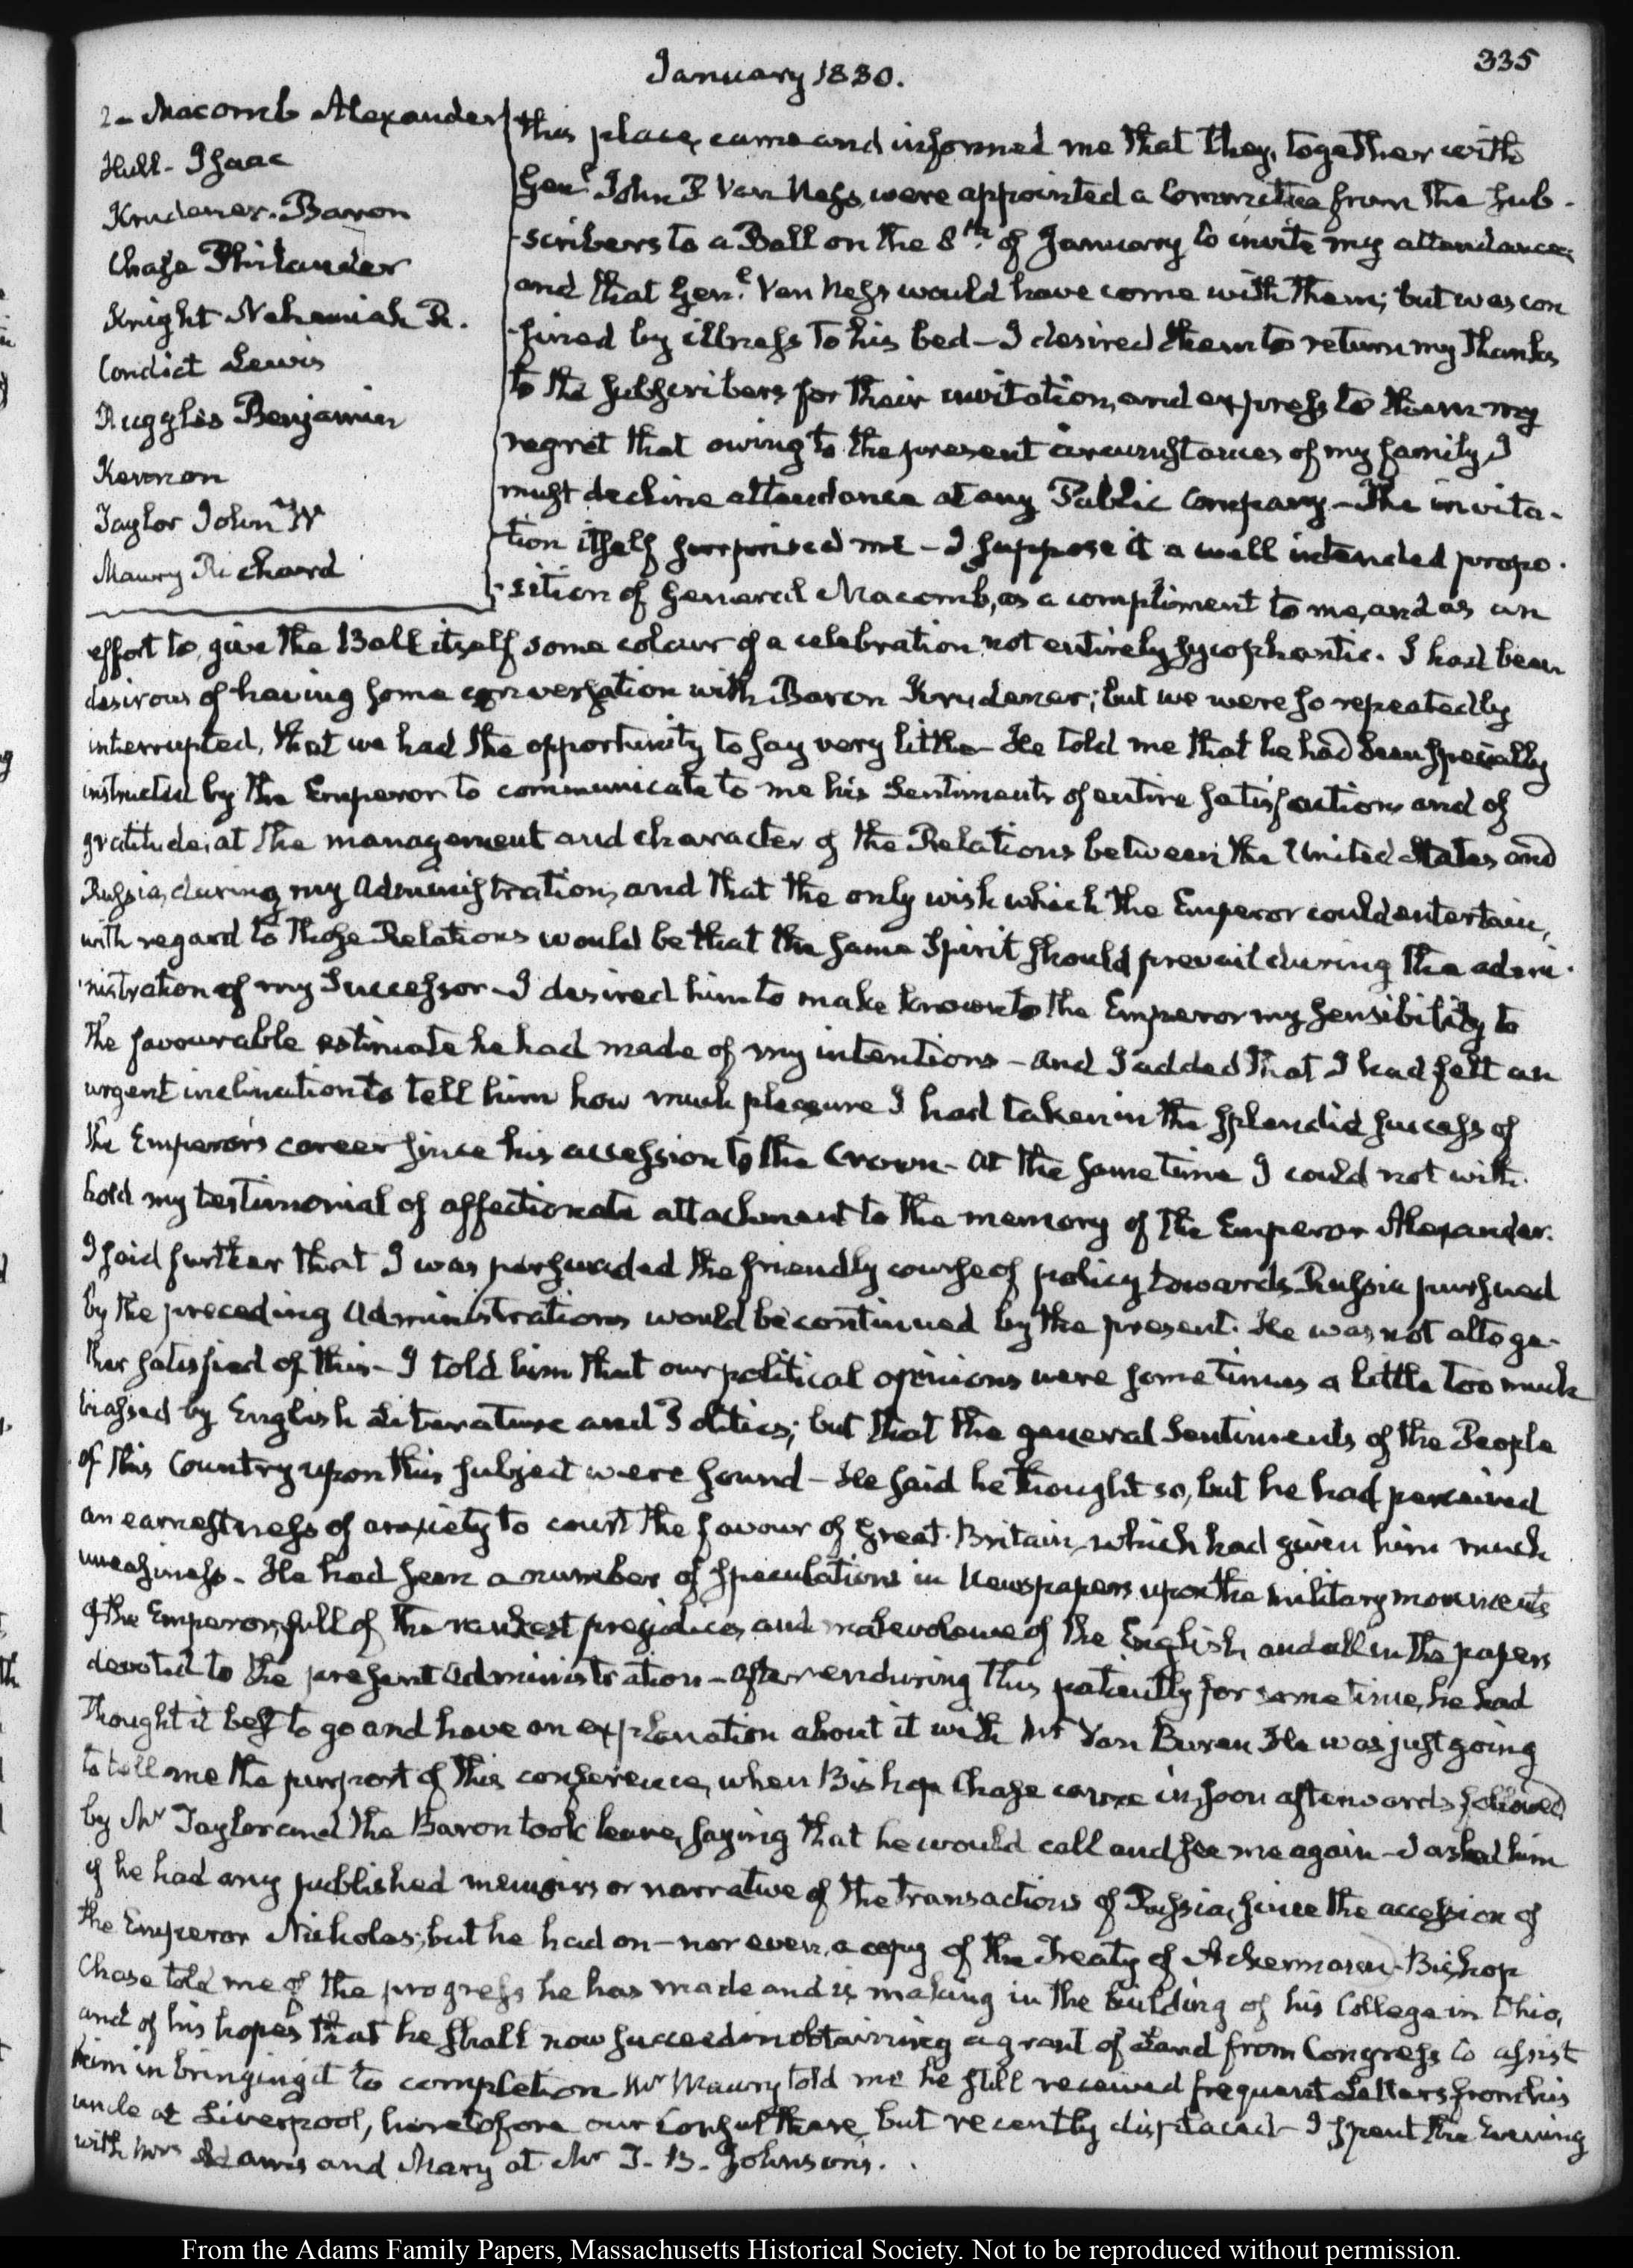 335
January 1830.
2 - Macomb Alexander
Hull - Isaac
Krudener. Baron
Chase Philander
Knight Nehemiah R.
Condict Lewis
Ruggles Benjamin
Kernon
Taylor John W
Maury Richard
this place, came and informed me that they, together with
Genl. John P Van Ness, were appointed a Committee from the sub-
-scribers to a Ball on the 8th. of January, to invite my attendance
and that Genl. Van Ness would have come with them; but was con
-fined by illness to his bed - I desired them to return my thanks
to the subscribers for their invitation, and express to them my
regret that owing to the present circumstances of my family, I
must decline attendance at any Public Company - The invita-
-tion itself surprised me - I suppose it a well intended propo-
-sition of General Macomb, as a compliment to me, and as an
effort to give the Ball itself some colour of a celebration not entirely sycophantic. I had been
desirous of having some conversation with Baron Krudener; but we were so repeatedly
interrupted, that we had the opportunity to say very little - He told me that he had been specially
instructed by the Emperor to communicate to me his Sentiments of entire satisfaction and of
gratitude, at the management and character of the Relations between the United States and
Russia, during my Administration, and that the only wish which the Emperor could entertain,
with regard to those Relations would be that the same Spirit should prevail during the admi-
-nistration of my Successor - I desired him to make known to the Emperor my sensibility to
the favourable estimate he had made of my intentions - and I added that I had felt an
urgent inclination to tell him how much pleasure I had taken in the splendid success of
the Emperor's career since his accession to the Crown - at the same time I could not with-
hold my testimonial of affectionate attachment to the memory of the Emperor Alexander.
I said further that I was persuaded the friendly course of policy towards Russia pursued
by the preceding Administrations would be continued by the present. He was not altoge-
ther satisfied of this - I told him that our political opinions were sometimes a little too much
biassed by English Literature and Politics; but that the general Sentiments of the People
of this Country upon this subject were sound - He said he thought so, but he had perceived
an earnestness of anxiety to court the favour of Great-Britain, which had given him much
uneasiness - He had seen a number of speculations in Newspapers upon the military movements
of the Emperor, full of the rankest prejudices and malevolence of the English and all in the papers
devoted to the present Administration - After enduring this patiently for some time, he had
thought it best to go and have an explanation about it with Mr Van Buren He was just going
to tell me the purport of this conference, when Bishop Chase came in, soon afterwards followed
by Mr Taylor and the Baron took leave, saying that he would call and see me again - I asked him
if he had any published memoirs or narrative of the transactions of Russia, since the accession of
the Emperor Nicholas; but he had on - nor even a copy of the Treaty of Ackermann - Bishop
Chase told me of the progress he has made and is making in the building of his College in Ohio,
and of his hopes that he shall now succeed in obtaining a grant of Land from Congress to assist
him in bringing it to completion Mr Maury told me he still received frequent Letters from his
uncle at Liverpool, heretofore our Consul there, but recently displaced - I spent the Evening
with Mrs Adams and Mary at Mr T. B. Johnson's.
From the Adams Family Papers, Massachusetts Historical Society. Not to be reproduced without permission.